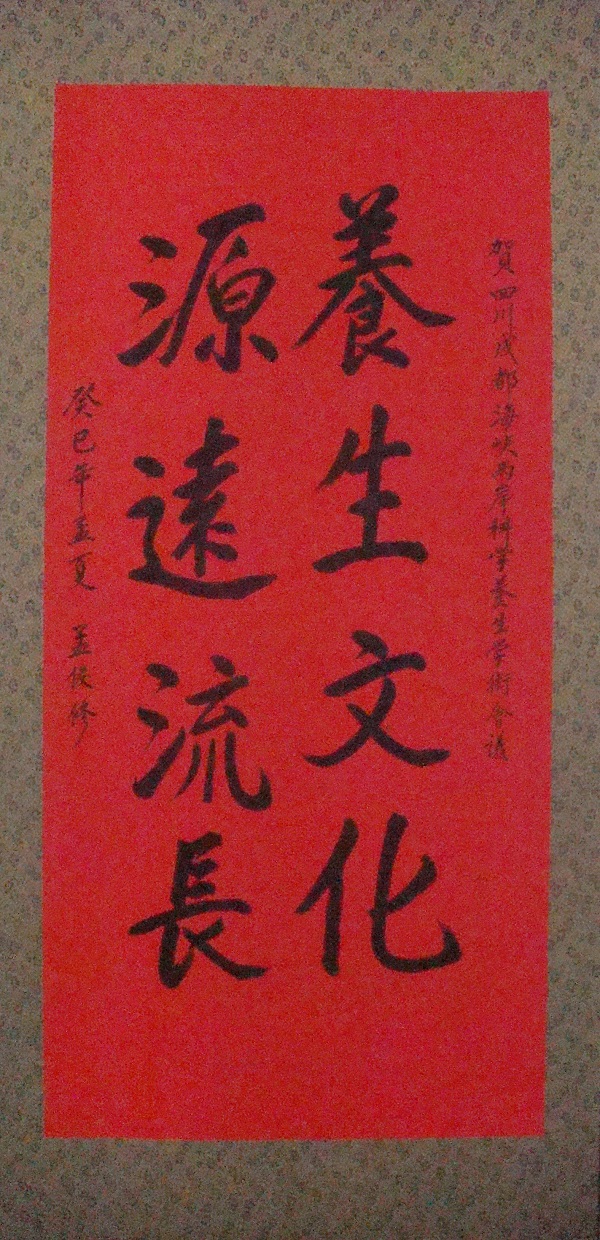 賀四川成都海峽两岸科学養生学術會議
養生文化
源遠流長
癸巳年孟夏 孟俊修